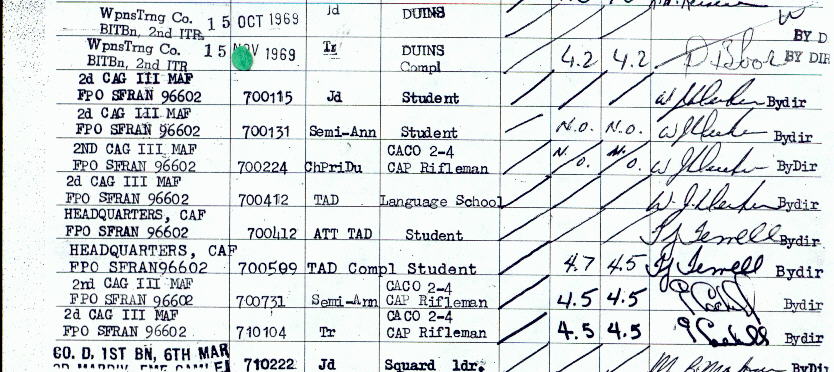 WpnsTrng Co. 15 OCT 1969 Jd DUINS
BITBn, 2nd ITR
WpnsTrng Co. 15 NOV 1969 Tr DUINS 4.2 4.2 BY DIR
BITBn, 2nd ITR Compl
2d CAG III MAF
FPO SFRAN 96602 700115 Jd Student Bydir
2d CAG III MAF
FPO SFRAN 96602 700131 Semi-Ann Student N.O. N.O. Bydir
2ND CAG III MAF CACO 2-4 N. N.
FPO SFRAN 96602 700224 ChPriDu CAP Rifleman O. O. ByDir
2d CAG III MAF
FPO SFRAN 96602 700412 TAD Language School Bydir
HEADQUARTERS, CAF
FPO SFRAN 96602 700412 ATT TAD Student Bydir
HEADQUARTERS, CAF
FPO SFRAN96602 700509 TAD Compl Student 4.7 4.5 Bydir
2nd CAG III MAF CACO 2-4
FPO SFRAN 96602 700731 Semi-Ann CAP Rifleman 4.5 4.5 Bydir
2d CAG III MAF CACO 2-4
FPO SFRAN 96602 710104 Tr CAP Rifleman 4.5 4.5 Bydir
CO. D. 1ST BN, 6TH MAR
710222 Jd Squard ldr. ByDir